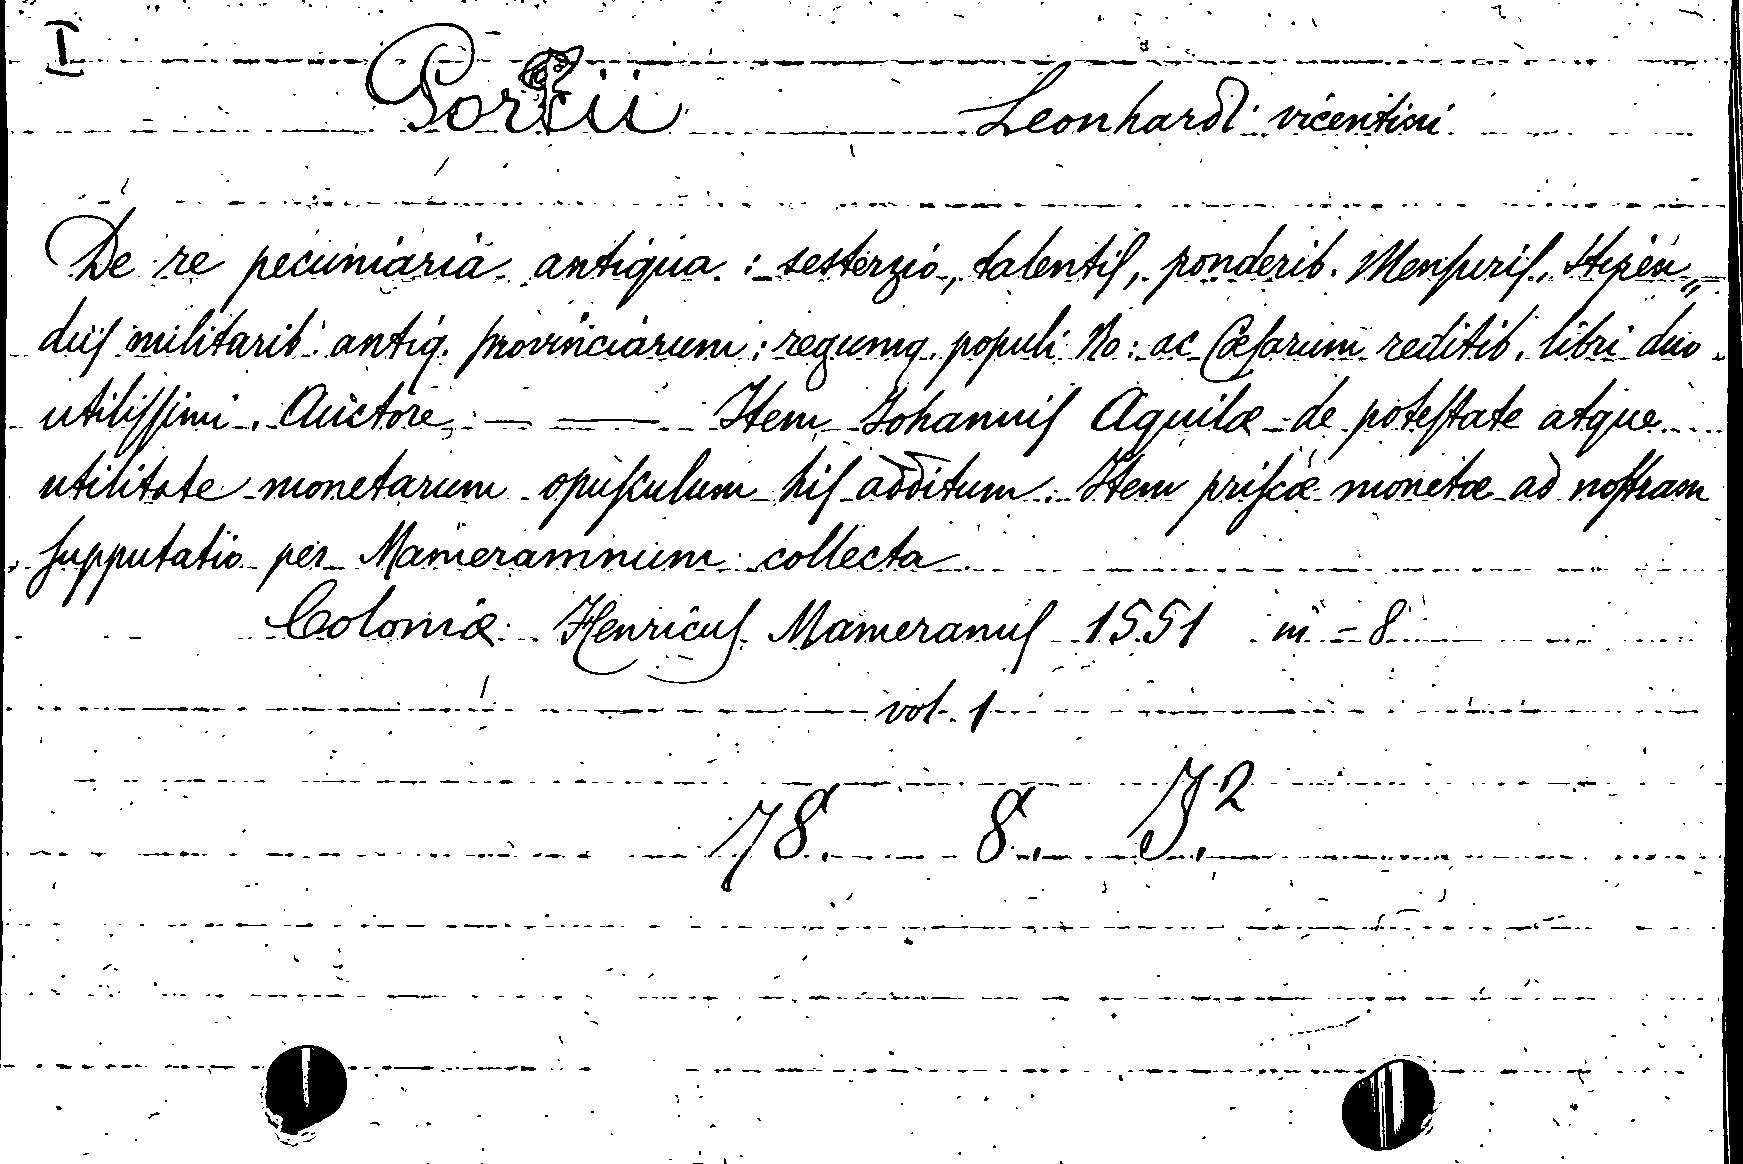 I
Portii Leonhardi vicentini
De re pecuniaria antiqua : sesterzio, talentiſ, ponderib. Menſuriſ, Stipen„
diiſ militarib antiq. provinciarum : regumq. populi Ro : ac Cæſarum reditib. libri duo
utiliſſimi. Auctore, — —— Item Johanniſ Aquilæ de poteſtate atque
utilitate monetarum opuſculum hiſ additum. Item priſcæ monetæ ad noſtram
ſupputatio per Mameramnum collecta
Coloniæ Henricuſ Mameranuſ 1551 in - 8
vol. 1
78. 8. J.²